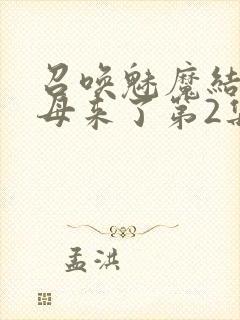 召唤魅魔结
母来了第2集
孟洪